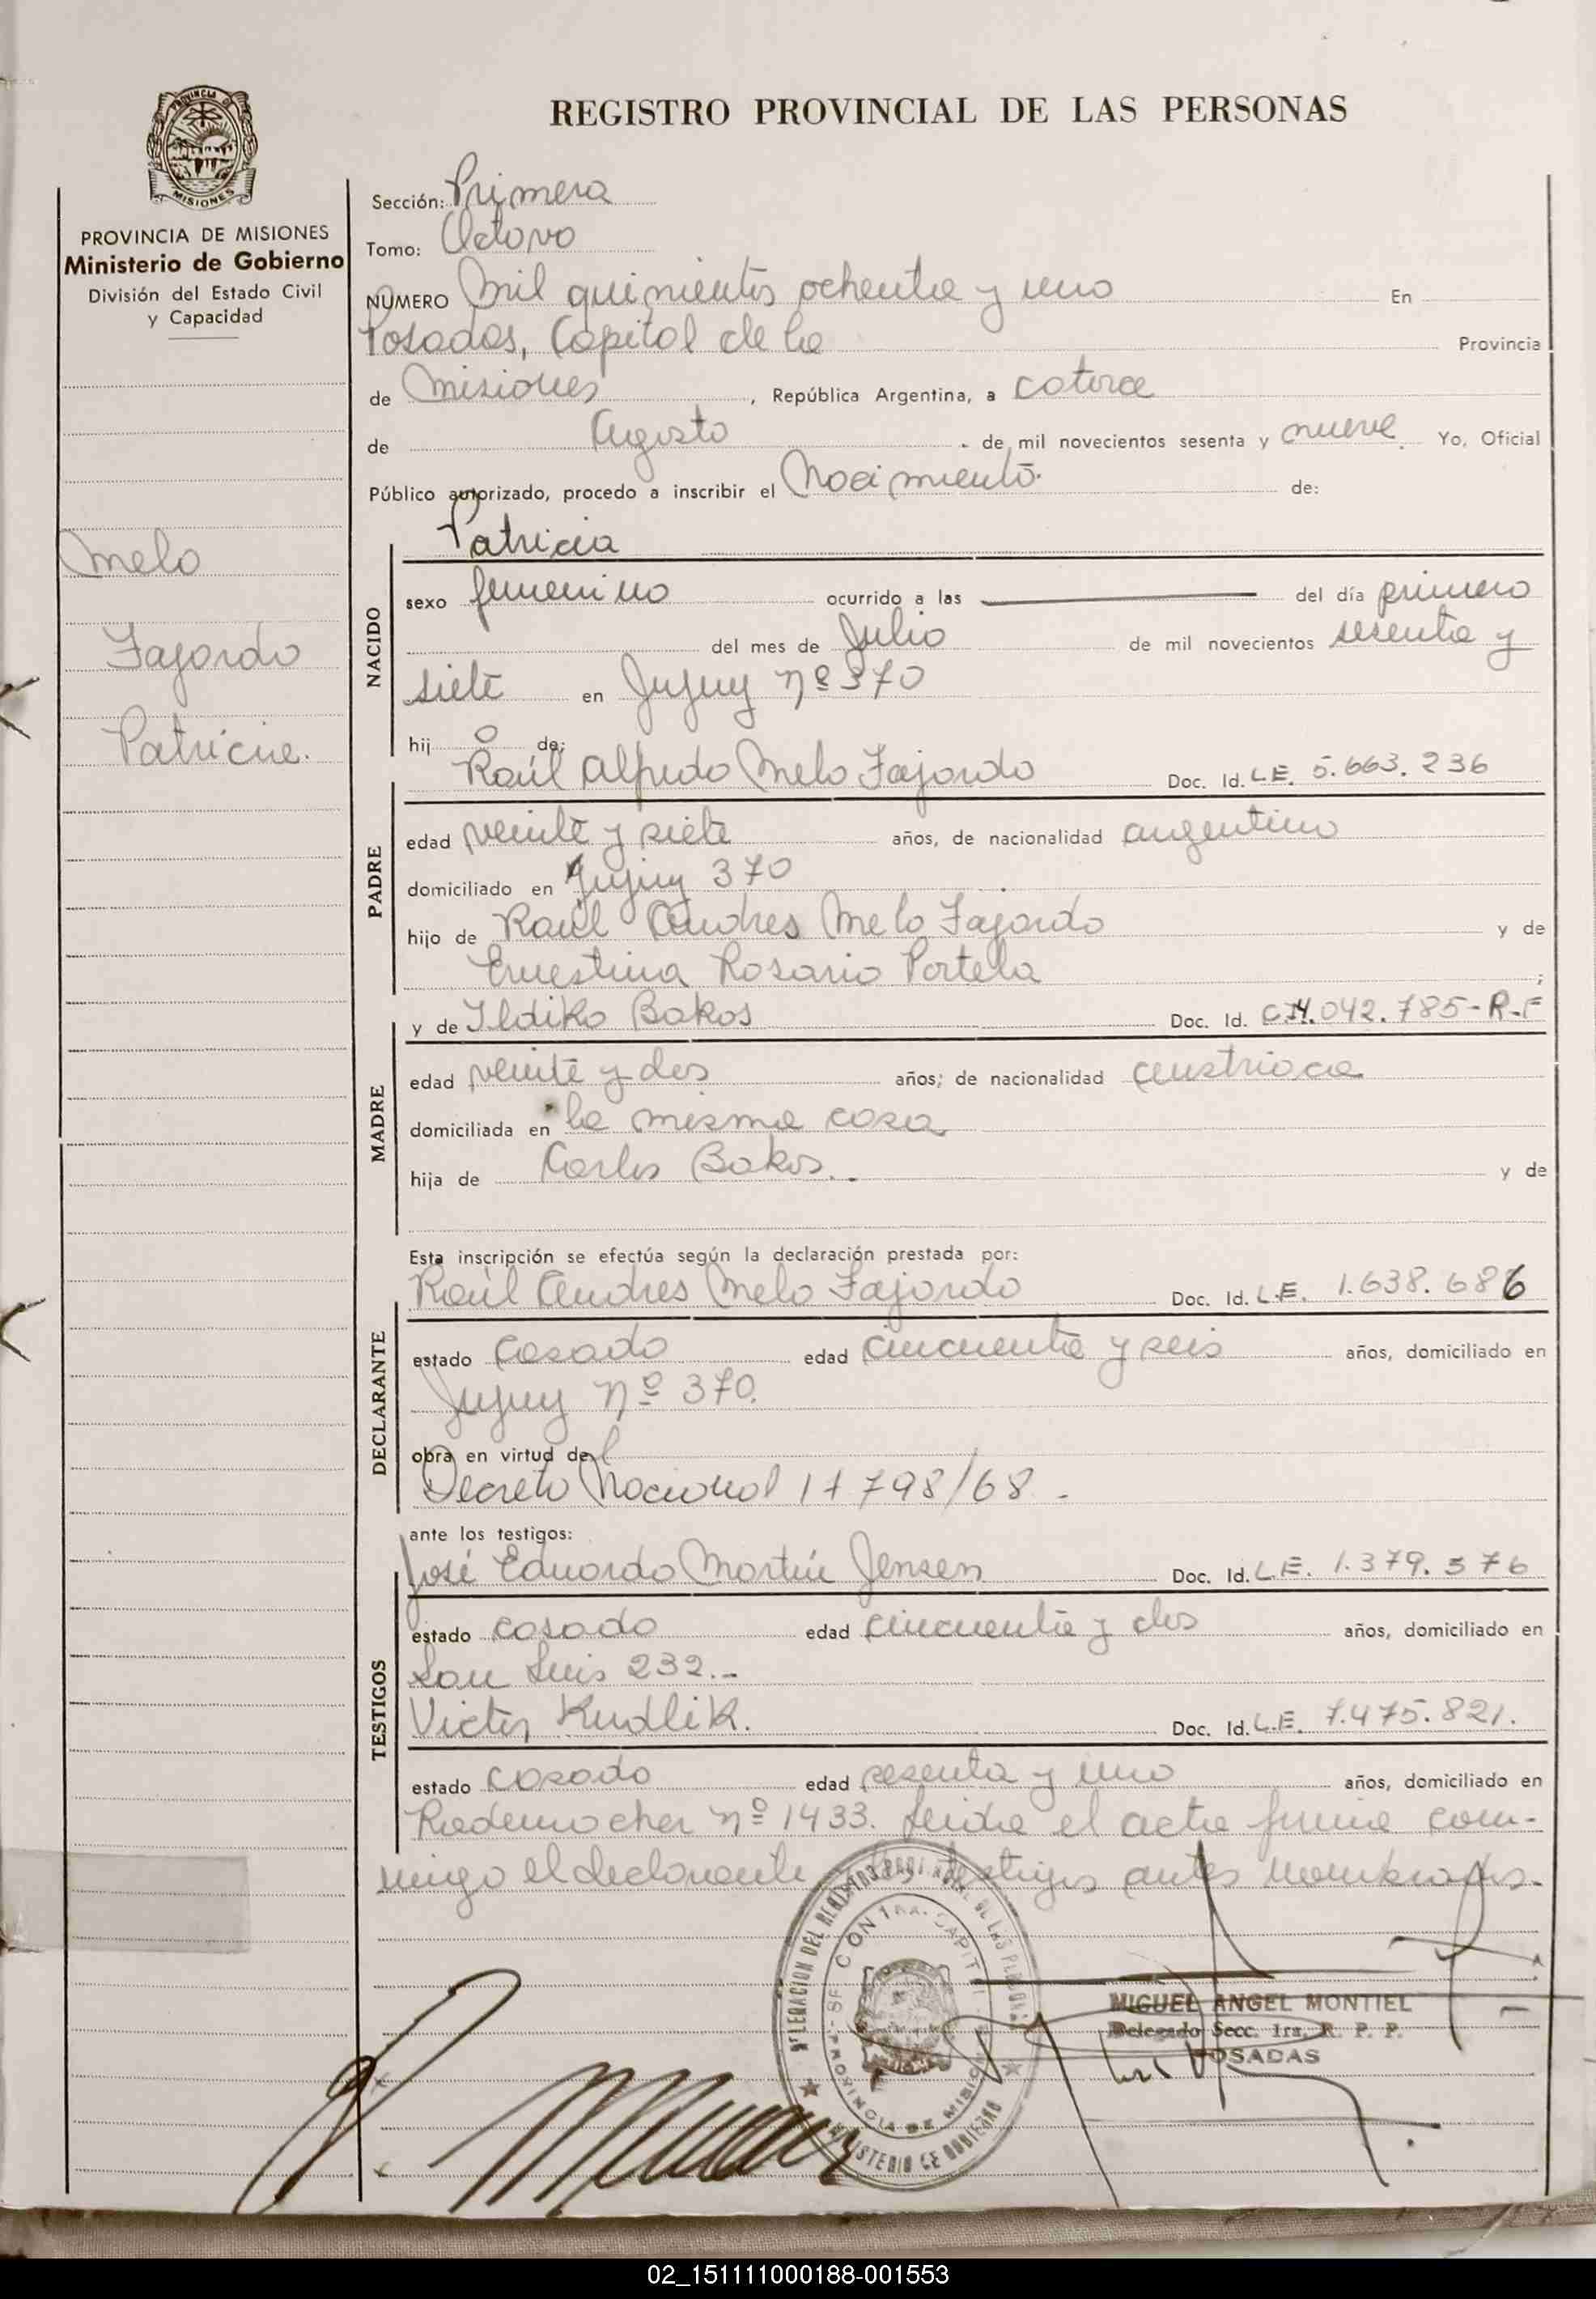 REGISTRO PROVINCIAL DE LAS PERSONAS
PROVINCIA DE
MISIONES
PROVINCIA DE MISIONES
Ministerio de Gobierno
División del Estado Civil
y Capacidad
Melo
Fajardo
Patricia.
Sección: Primera
Tomo: Octavo
NUMERO Mil quinientos ochenta y uno En
Posadas, Capital de la Provincia
de Misiones, República Argentina, a catorce
de Agosto de mil novecientos sesenta y nueve Yo, Oficial
Público autorizado, procedo a inscribir el Nacimiento de:
NACIDO
Patricia
sexo femenino ocurrido a las del día primero
del mes de Julio de mil novecientos sesenta y
siete en Jujuy nº 370
hij a de:
PADRE
Raúl Alfredo Melo Fajardo Doc. Id. L.E. 5.663.236
edad veinte y siete años, de nacionalidad argentino
domiciliado en Jujuy 370
hijo de Raúl Andres Melo Fajardo y de
Ernestina Rosario Portela ;
MADRE
y de Ildiko Bakos Doc. Id. 042.785-R-F
edad veinte y dos años; de nacionalidad austriaca
domiciliada en la misma casa
hija de Carlos Bakos. y de
DECLARANTE
Esta inscripción se efectúa según la declaración prestada por:
Raúl Andres Melo Fajardo Doc. Id. L.E. 1.638.686
estado casado edad cincuenta y seis años, domiciliado en
Jujuy nº 370.
obra en virtud del
Decreto Nacional 17798/68 -
TESTIGOS
ante los testigos:
José Eduardo Martín Jensen Doc. Id. L.E. 1.379.576
estado casado edad cincuenta y dos años, domiciliado en
San Luis 232.-
Victor Kudlik. Doc. Id. L.E. 7.475.821.
estado casado edad sesenta y uno años, domiciliado en
Rademacher nº 1433. Leida el acta firma con-
migo el declarante testigos antes nombrados.-
MIGUEL ANGEL MONTIEL
Delegado Secc. 1ra. R. P. P.
POSADAS
PROVINCIA DE MISIONES
MINISTERIO DE GOBIERNO
02_151111000188-001553